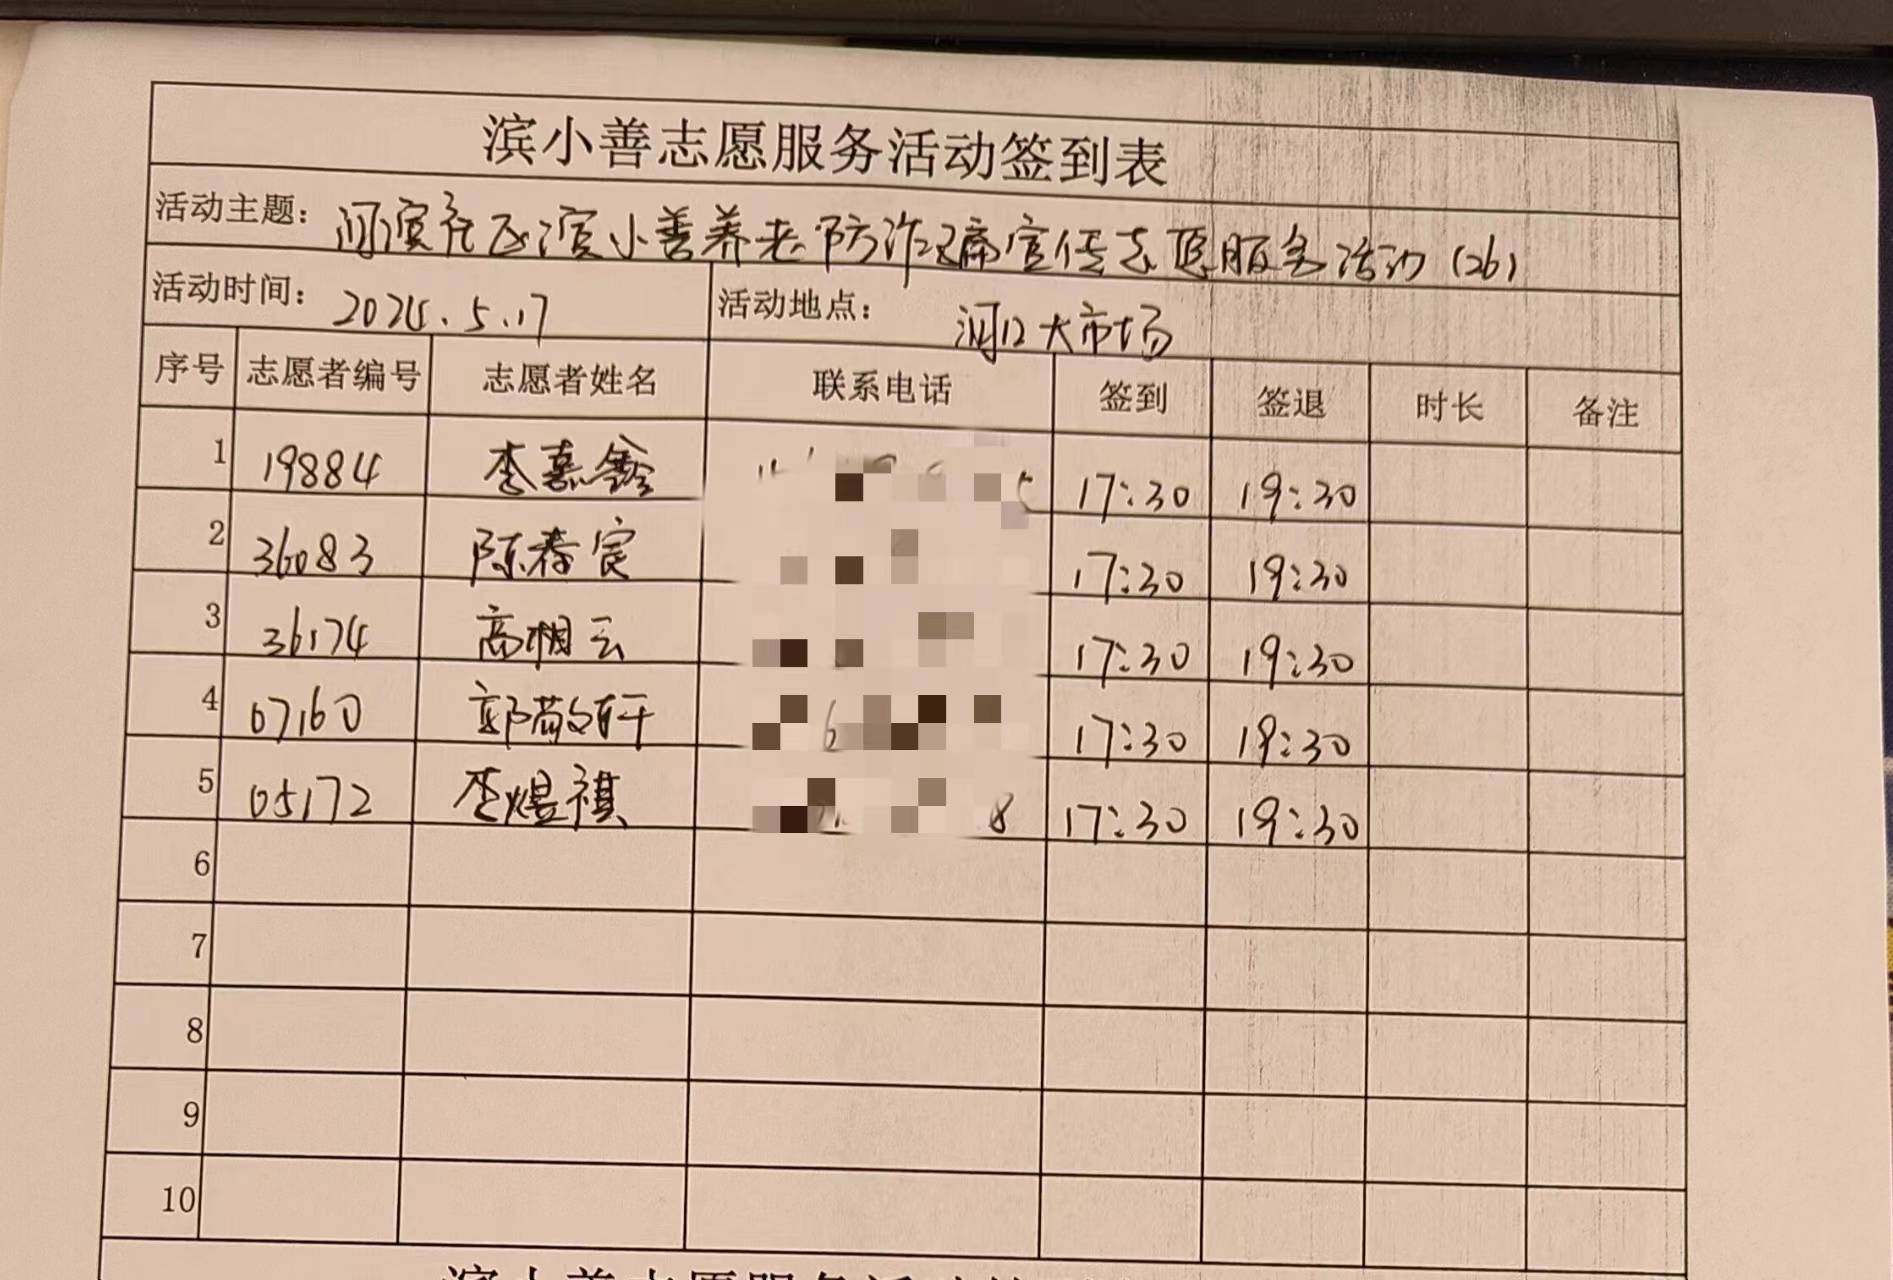 滨小善志愿服务活动签到表
活动主题：河滨社区滨小善养老防诈骗宣传志愿服务活动（26）
活动时间：2024.5.17 活动地点：河口大市场
序号 志愿者编号 志愿者姓名 联系电话 签到 签退 时长 备注
1 19884 李嘉鑫 17:30 19:30
2 36083 陈春宸 17:30 19:30
3 36174 高相云 17:30 19:30
4 07160 郭敬轩 17:30 19:30
5 05172 李煜祺 17:30 19:30
6
7
8
9
10
滨小善志愿服务活动